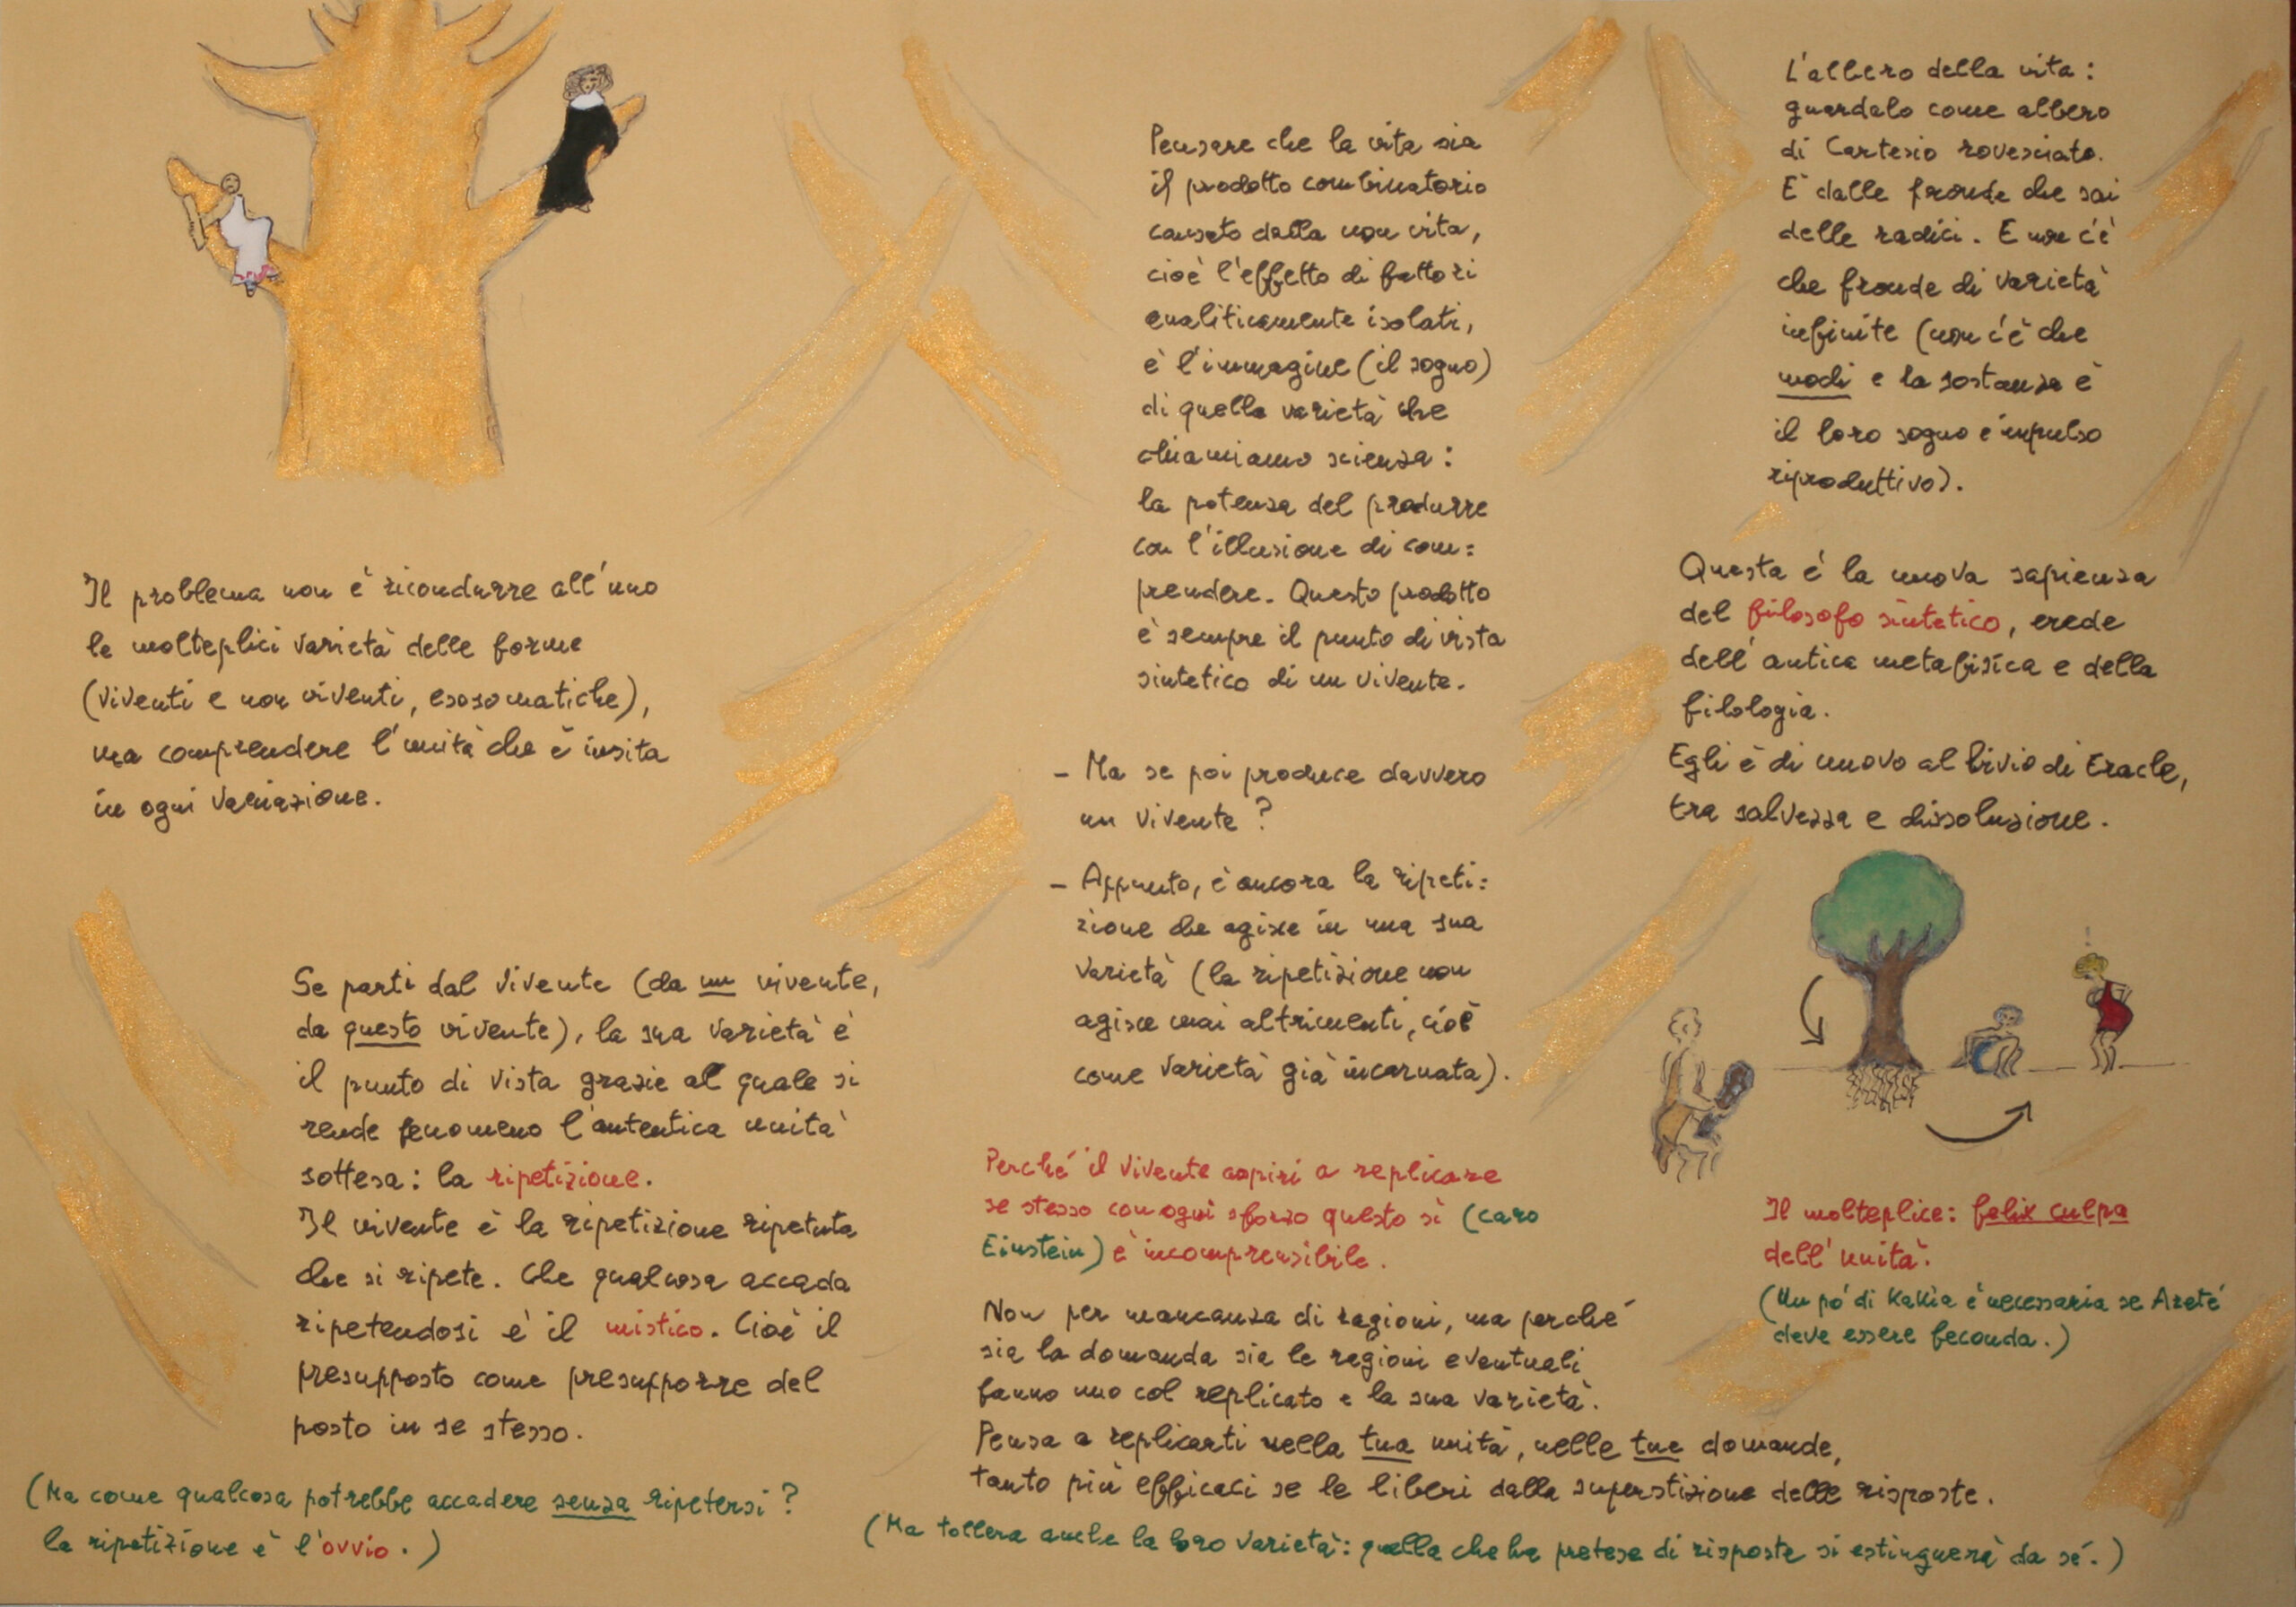 Il problema non è ricondurre all'uno
le molteplici varietà delle forme
(viventi e non viventi, esosomatiche),
ma comprendere l'unità che è insita
in ogni variazione.
Se parti dal vivente (da un vivente,
da questo vivente), la sua varietà è
il punto di vista grazie al quale si
rende fenomeno l'autentica unità
sottesa: la ripetizione.
Il vivente è la ripetizione ripetuta
che si ripete. Che qualcosa accada
ripetendosi è il mistico. Cioè il
presupposto come presupporre del
posto in se stesso.
(Ma come qualcosa potrebbe accadere senza ripetersi?
la ripetizione è l'ovvio.)
Pensare che la vita sia
il prodotto combinatorio
causato dalla non vita,
cioè l'effetto di fattori
analiticamente isolati,
è l'immagine (il sogno)
di quella varietà che
chiamiamo scienza:
la potenza del produrre
con l'illusione di com=
prendere. Questo prodotto
è sempre il punto di vista
sintetico di un vivente.
- Ma se poi produce davvero
un vivente?
- Appunto, è ancora la ripeti=
zione che agisce in una sua
varietà (la ripetizione non
agisce mai altrimenti, cioè
come varietà già incarnata).
Perché il vivente aspiri a replicare
se stesso con ogni sforzo questo sì (caro
Einstein) è incomprensibile.
Non per mancanza di ragioni, ma perché
sia la domanda sia le ragioni eventuali
fanno uno col replicato e la sua varietà.
Pensa a replicarti nella tua unità, nelle tue domande,
tanto più efficaci se le liberi dalla superstizione delle risposte.
(Ma tollera anche la loro varietà: quella che ha pretese di risposte si estinguerà da sé.)
L'albero della vita:
guardalo come albero
di Cartesio rovesciato.
È dalle fronde che sai
delle radici. E non c'è
che fronde di varietà
infinite (non c'è che
modi e la sostanza è
il loro sogno e impulso
riproduttivo).
Questa è la nuova sapienza
del filosofo sintetico, erede
dell'antica metafisica e della
filologia.
Egli è di nuovo al bivio di Eracle,
tra salvezza e dissoluzione.
!
Il molteplice: felix culpa
dell'unità.
(Un pó di Kakia è necessaria se Areté
deve essere feconda.)